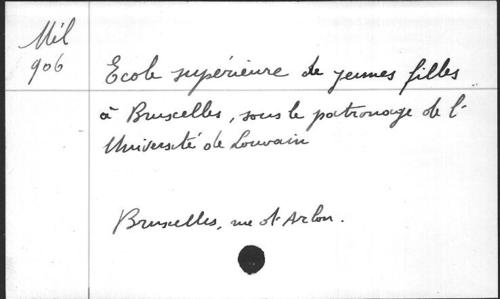 Mél
906
Ecole supérieure de jeunes filles
à Bruxelles, sous le patronage de l'
Université de Louvain
Bruxelles, rue d'Arlon.